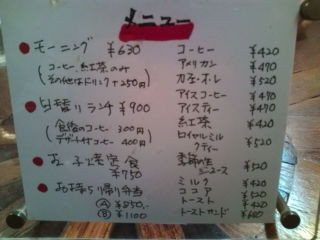 メニュー
モーニング ¥630
(コーヒー、紅茶のみ
その他はドリンク+250円)
日替りランチ ¥900
(食後のコーヒー 300円
デザート付 コーヒー 400円)
お子様定食
¥750
お持ち帰り弁当
Ⓐ ¥850.-
Ⓑ ¥1100
コーヒー ¥420
アメリカン ¥470
カフェ・オ・レ ¥520
アイスコーヒー ¥470
アイスティー ¥470
紅茶 ¥420
ロイヤルミルクティー ¥520
季節の生ジュース ¥520
ミルク ¥420
ココア ¥520
トースト ¥420
トーストサンド ¥680